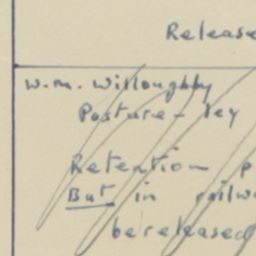 Release
W.M. Willoughby
Pasture - ley
Retention p
But in railw
be released